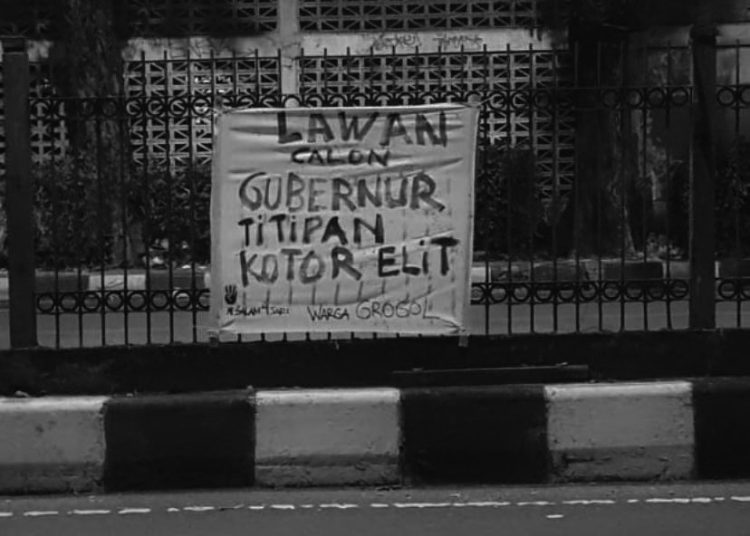 LAWAN
CALON
GUBERNUR
TiTiPAN
KOTOR ELiT
WARGA GROGOL